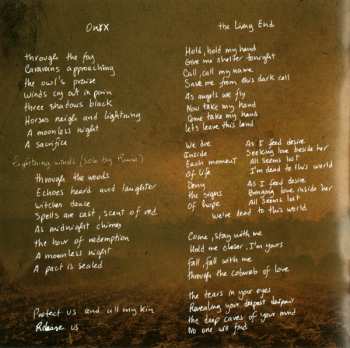 Onyx
through the fog
Caravans approaching
the owl's praise
winds cry out in pain
three shadows black
Horses neigh and lightning
A moonless night
A sacrifice
winds (solo by
through the woods
Echoes heard and laughter
witches dance
Spells are cast, scent of red
As midnight chimes
the hour of redemption
A moonless night
A pact is sealed
Protect us and all my kin
Release us
the Living End
Hold, hold my hand
Give me shelter tonight
Call, call my name
Save me from this dark call
As angels we fly
Now take my hand
Come take my hand
Lets leave this land
We die As I feed desire
Inside Seeking love beside her
Each moment All seems lost
Of life I'm dead to this world
Deny As I feed desire
the signs Burning love inside her
Of hope All seems lost
We're dead to this world
Come, stay with me
Hold me closer, I'm yours
Fall, fall with me
through the cobweb of love
the tears in your eyes
Revealing your deepest despair
the deep caves of your mind
No one will find